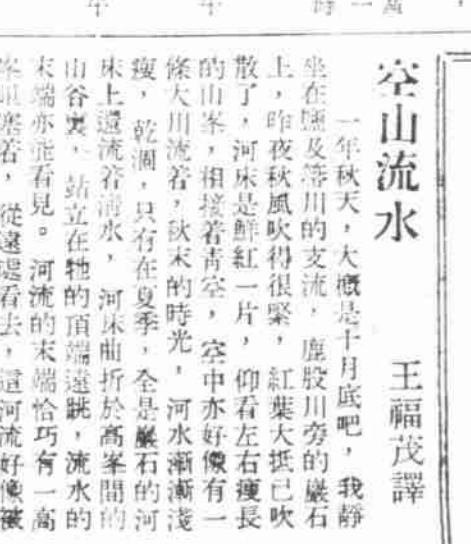 空山流水
王福茂譯
一年秋天,大概是十月底吧,我靜
坐在鹽及川的支流,鹿股川旁的巖石
上,昨夜秋風吹得很緊,紅葉大抵已吹
散了,河床是鮮紅一片,仰看左右瘦長
的山峯,相接着青空,空中亦好像有一
條大川流着,秋末的時光,河水漸漸淺
瘦,乾涸,只有在夏季,全是巖石的河
床上還流着清水,河床曲折於高峯間的
山谷裏,站立在牠的頂端遠眺,流水的
末端亦能看見。河流的末端恰巧有一高
峯阻塞着,從遠處看去,這河流好像被